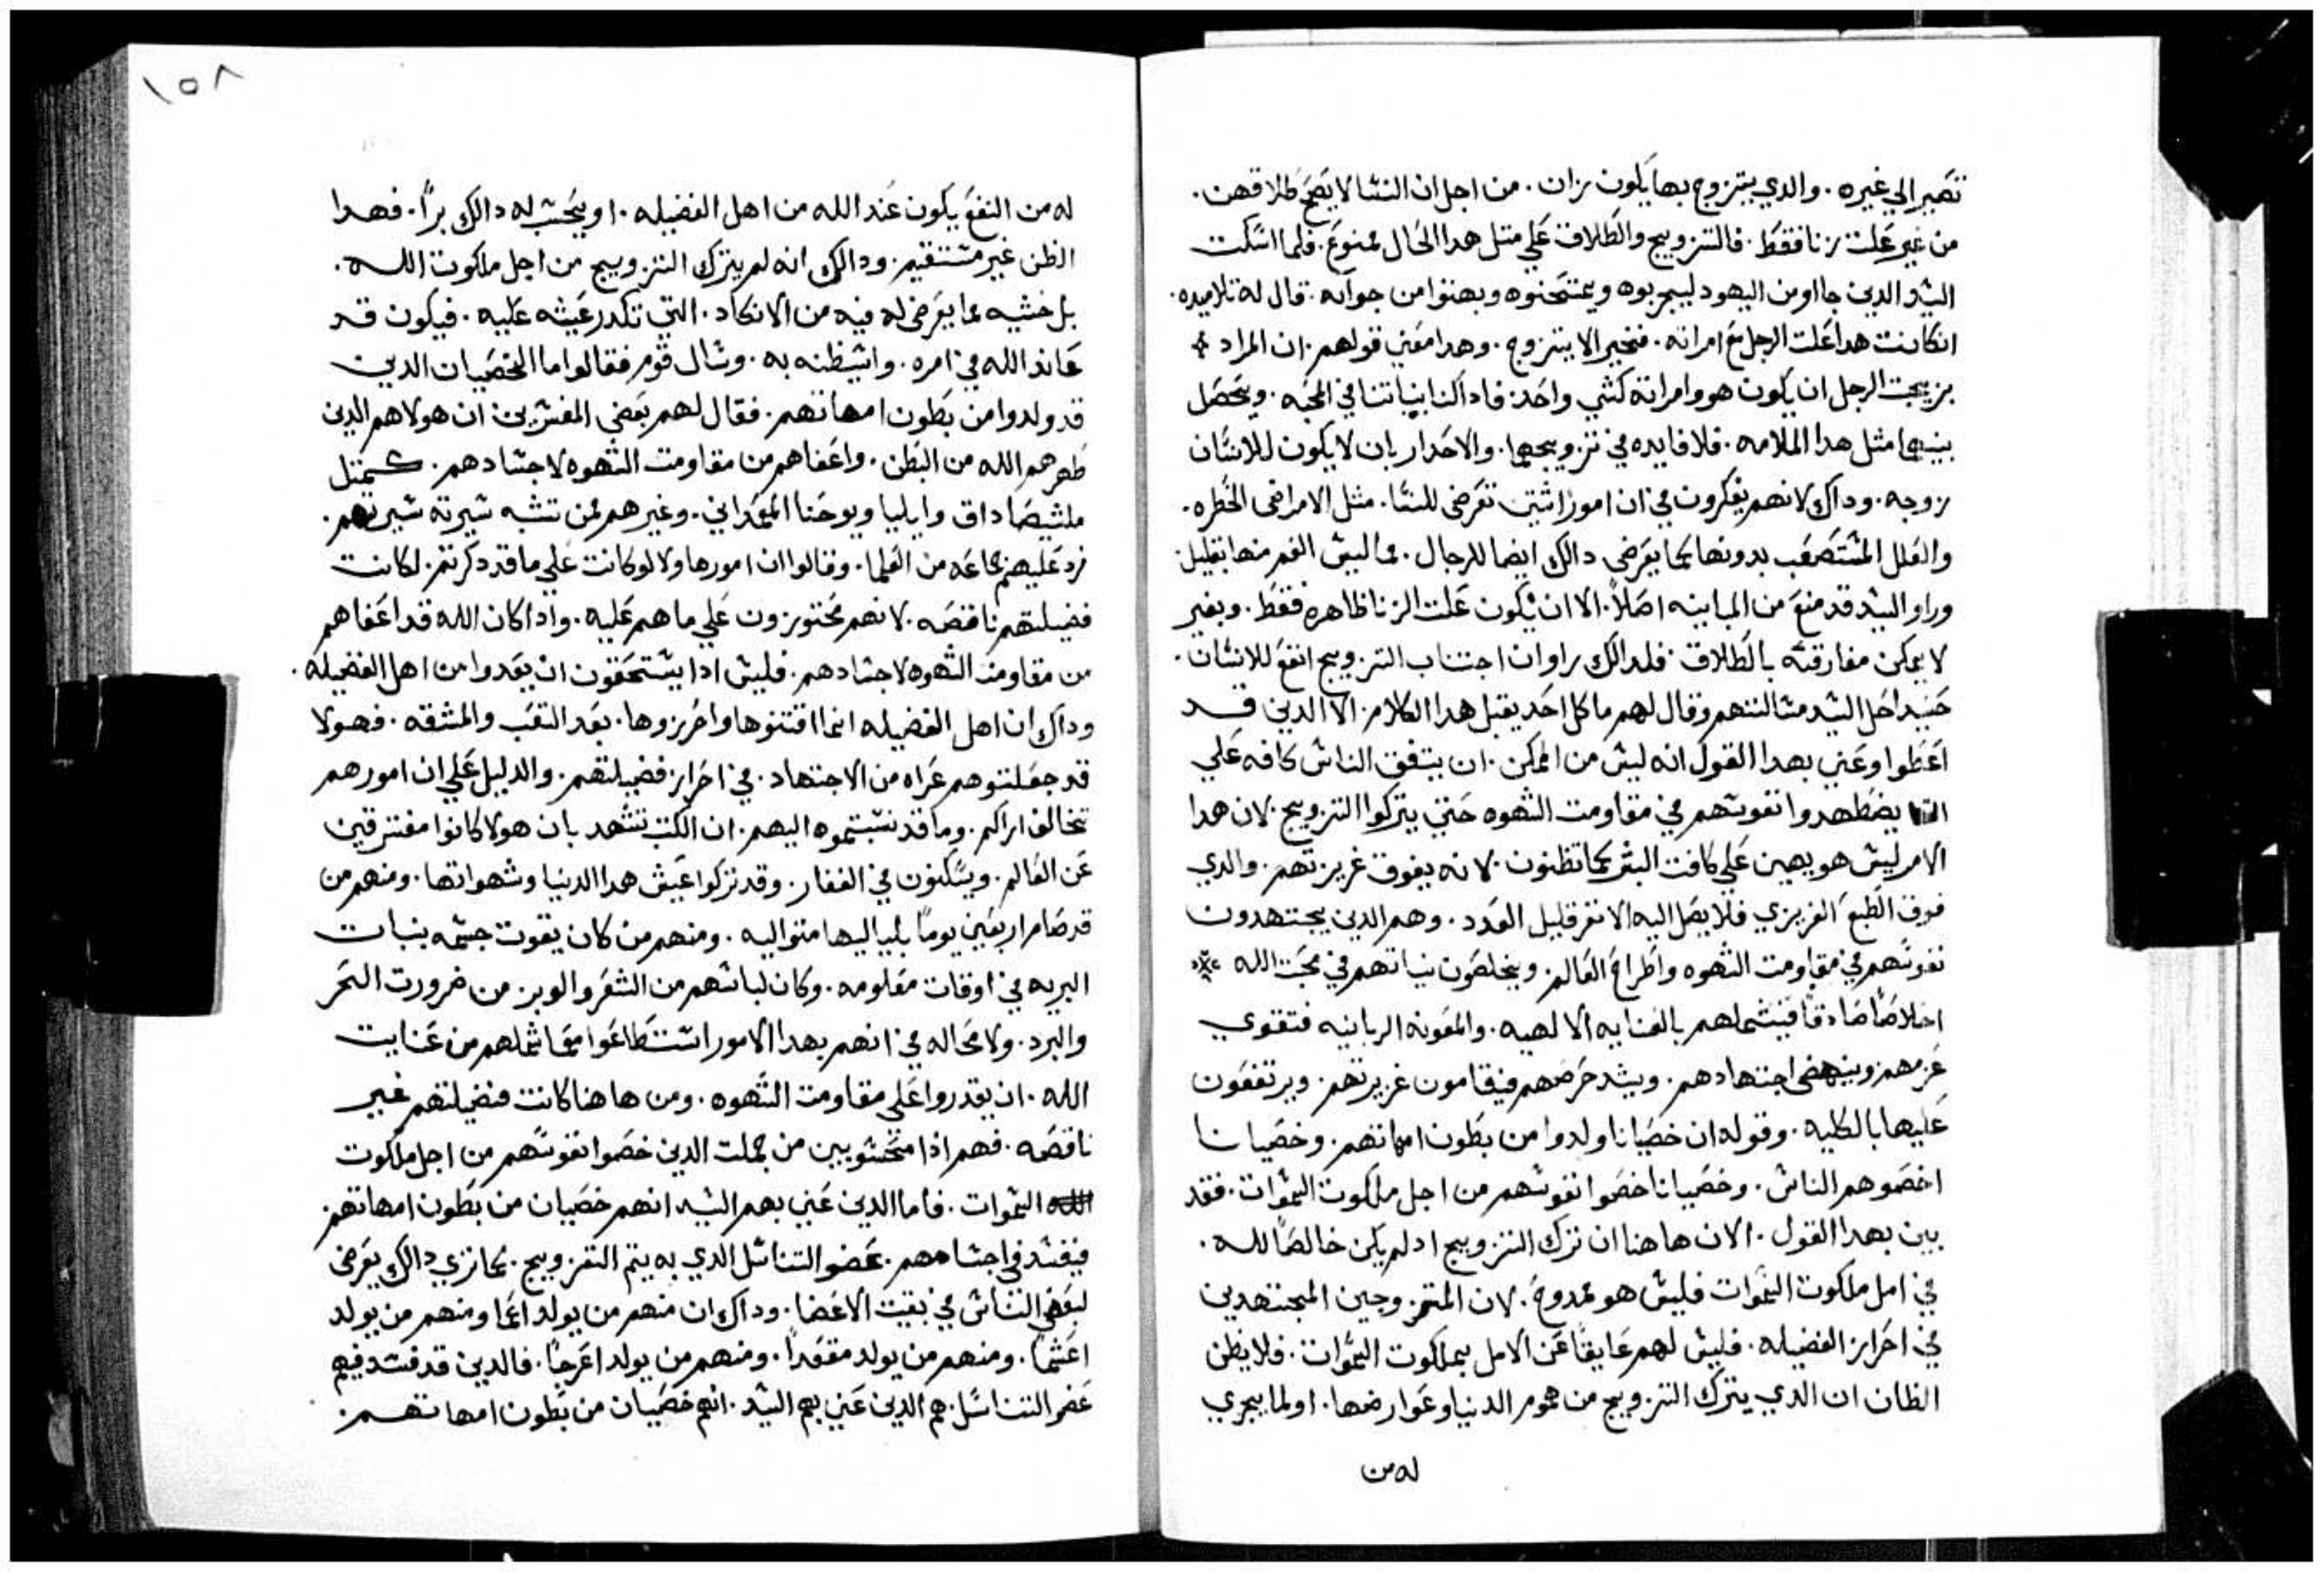 تصير الي غيره. والدي يتزوج بها يكون زان. من اجل ان النسا لا يصح طلاقهن.
من غير علت زنا فقط. فالتزويج والطلاق علي متل هدا الحال ممنوع. فلما اسكت
السيد الدين جااو من اليهود ليجربوه ويمتحنوه وبهتوا من جوابه. قال له تلاميده.
انكانت هدا علت الرجل مع امراته. فخير الا يتزوج. وهدا معني قولهم. ان المراد
بزيجت الرجل ان يكون هو وامراته كشي واحد. فادا كنا بنياتنا في المحبه. ويحصل
بينهما مثل هدا الملامه. فلا فايده في تزويجهما. والاحدار بان لا يكون للانسان
زوجه. وداك لانهم يفكرون في ان امورا شتي تعرض للنسا. مثل الامراض الخطره.
والعلل المستصعب بدونها كما يعرض دالك ايضا للرجال. مما ليس الغم منها بقليل
وراو السيد قد منع من المباينه اصلاً. الا ان تكون علت الزنا ظاهره فقط. وبغير
لا يمكن مفارقته بالطلاق. فلدالك راوا ان اجتناب التزويج انفع للانسان.
حنيد احل السيد مسالتهم وقال لهم ما كل احد يقبل هدا الكلام. الا الدين قد
اعطوا وعني بهدا القول انه ليس من الممكن. ان يتفق الناس كافه علي
يضطهدوا نفوسهم في مقاومت الشهوه حتي يتركوا التزويج. لان هدا
الامر ليس هو يهين علي كافت البشر كما تظنون. لانه يفوق غريزتهم. والدي
فوق الطبع الغريزي فلا يصل اليه الا نفر قليل العدد. وهم الدين يجتهدون
نفوسهم في مقاومت الشهوه واطراح العالم. ويخلصون نياتهم في محبت الله
اخلاصًا صادقًا فيشملهم بالعنايه الالهيه. والمعونه الربانيه فتقوي
عزمهم وينهض اجتهادهم. ويشد حرصهم فيقامون غريزتهم. ويرتفعون
عليها بالكليه. وقوله ان خصيانا ولدوا من بطون امهاتهم. وخصيانا
اخصوهم الناس. وخصيانا خصوا نفوسهم من اجل ملكوت السموات. فقد
بين بهدا القول. الان هاهنا ان ترك التزويج ادلم يكن خالصًا لله.
في امل ملكوت السموات فليس هو ممدوح. لان المتزوجين المجتهدين
في احراز الفضيله. فليس لهم عايقًا عن الامل بملكوت السموات. فلا يظن
الظان ان الدي يترك التزويج من هموم الدنيا وعوارضها. او لما يجري
له من
١٥٨
له من النفع يكون عند الله من اهل الفضيله. او يحسب له دالك برًا. فهدا
الظن غير مستقيم. ودالك انه لم يترك التزويج من اجل ملكوت الله.
بل خشيه مما يعرض له فيه من الانكاد. التي تكدر عيشه عليه. فيكون قد
عاند الله في امره. واسيظنه به. وسال قوم فقالوا اما الخصيان الدين
قد ولدوا من بطون امهاتهم. فقال لهم بعض المفسرين ان هولا هم الدين
طهرهم الله من البطن. واعفاهم من مقاومت الشهوه لاجسادهم. كمتل
ملشيصاداق وايليا ويوحنا المعمداني. وغيرهم ممن تشبه سيرته سيرتهم.
فرد عليهم جماعه من العلما. وقالوا ان امورهاولا لو كانت علي ما قد دكرتم. لكانت
فضيلتهم ناقصه. لانهم محتوزون علي ما هم عليه. وادا كان الله قد اعفاهم
من مقاومة الشهوه لاجسادهم. فليس ادا يستحقون ان يعدوا من اهل الفضيله.
وداك ان اهل الفضيله انما اقتنوها واحرزوها. بعد التعب والمشقه. فهولا
قد جعلتوهم عراه من الاجتهاد. في احراز فضيلتهم. والدليل علي ان امورهم
تخالف اراكم. وما قد نسبتموه اليهم. ان الكتب تشهد بان هولا كانوا مفترقين
عن العالم. ويسكنون في القفار. وقد تركوا عيش هدا الدنيا وشهواتها. ومنهم من
قد صام اربعين يومًا بلياليها متواليه. ومنهم من كان يقوت جسمه بنبات
البريه في اوقات معلومه. وكان لباسهم من الشعر والوبر. من ضرورت الحر
والبرد. ولا محاله في انهم بهدا الامور استطاعوا مع ما شملهم من عنايت
الله. ان يقدروا علي مقاومت الشهوه. ومن هاهنا كانت فضيلتهم غير
ناقصه. فهم اذا محسوبين من جملت الدين خصوا نفوسهم من اجل ملكوت
السموات. فاما الدين عني بهم السيد انهم خصيان من بطون امهاتهم.
فيفسد في اجسامهم. عضو التناسل الدي به يتم التزويج. كما نري دالك يعرض
لبعض الناس في بقيت الاعضا. وداك ان منهم من يولد اعما ومنهم من يولد
اعسمًا. ومنهم من يولد مقعدًا. ومنهم من يولد اعرجًا. فالدين قد فسد فيهم
عضو التناسل. هم الدين عني بهم السيد. انهم خصيان من بطون امهاتهم.